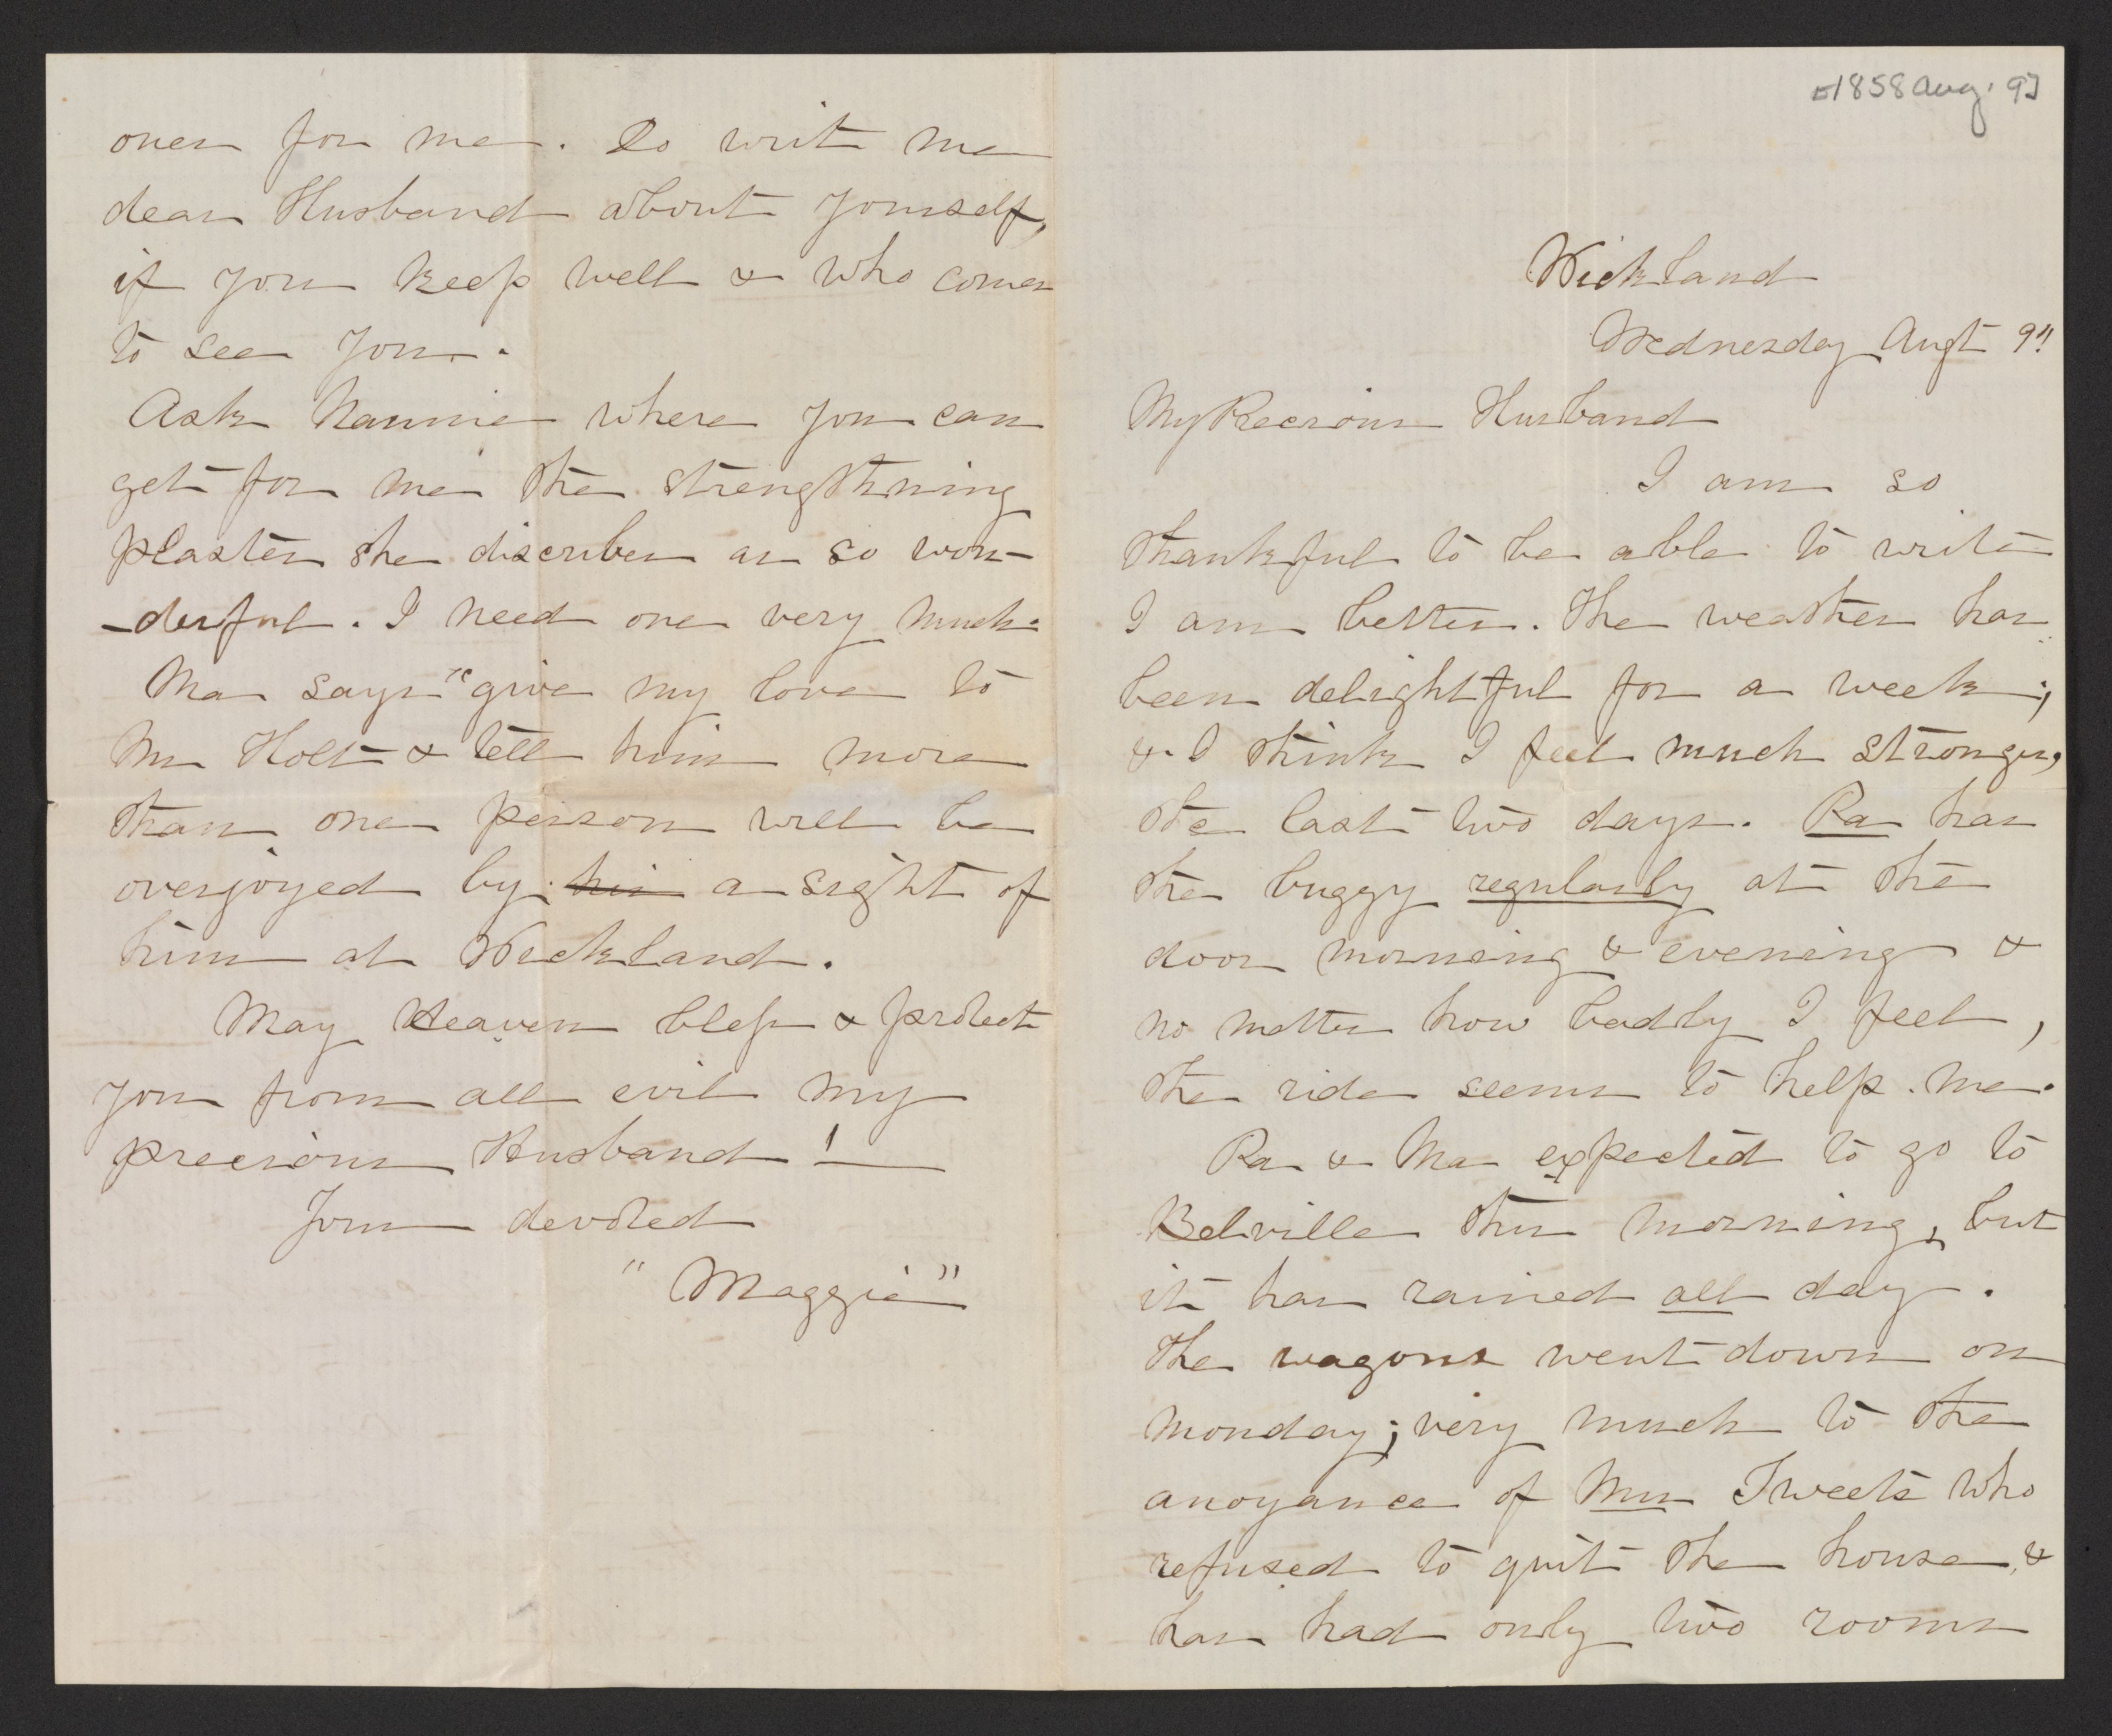 [1858 Aug. 9]
Wickland
Wednesday Augt 9"
My Precious Husband
I am so
thankful to be able to write
I am better. The weather has
been delightful for a week;
& I think I feel much stronger,
the last two days. Pa has
the buggy regularly at the
door morning & evening &
no matter how badly I feel,
the ride seems to help me.
Pa & Ma expected to go to
Belville this morning, but
it has rained all day.
The wagons went down on
Monday; very much to the
anoyance of Mrs Tweets who
refused to quit the house, &
has had only two rooms
ones for me. Do writ me
dear Husband about yourself,
if you keep well & who comes
to see you.
Ask Nannie where you can
get for me the strengthning
plaster she discribes as so won-
-derful. I need one very much.
Ma says "give my love to
Mr Holt & tell him more
than one person will be
overjoyed by his a sight of
him at Wickland.
May Heaven bless & protect
you from all evil my
precious Husband!
Your devoted
"Maggie"